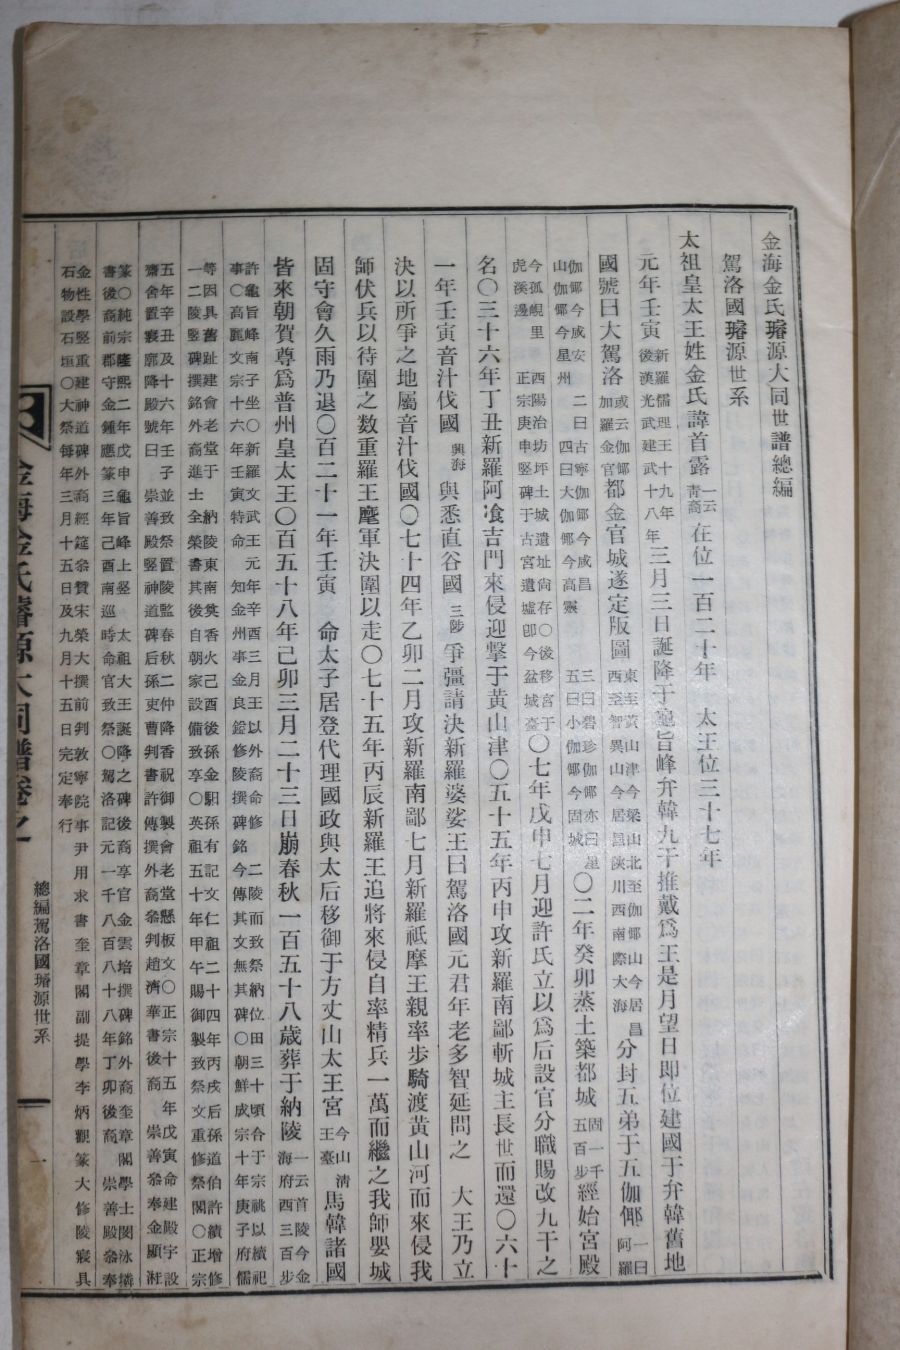 金海金氏璿源大同世譜總編
駕洛國璿源世系
太祖皇太王姓金氏諱首露一云青裔在位一百二十年　太王位三十七年
元年壬寅新羅儒理王十九年後漢光武建武十八年三月三日誕降于龜旨峰弁韓九干推戴爲王是月望日即位建國于弁韓舊地
國號曰大駕洛或云伽倻加羅金官都金官城遂定版圖東至黃山津今梁山北至伽倻山今居昌西至智異山今居昆陝川西南際大海分封五弟于五伽倻一曰阿羅
伽倻今咸安二曰古寧伽倻今咸昌三曰碧珍伽倻亦曰星山伽倻今星州四曰大伽倻今高靈五曰小伽倻今固城〇二年癸卯蒸土築都城固一千五百步經始宮殿
今孤峴里西陽治坊坪土城遺址尙存〇後移宮于虎溪邊正宗庚申竪碑于古宮遺墟卽今盆城臺〇七年戊申七月迎許氏立以爲后設官分職賜改九干之
名〇三十六年丁丑新羅阿飡吉門來侵迎擊于黃山津〇五十五年丙申攻新羅南鄙斬城主長世而還〇六十
一年壬寅音汁伐國興海與悉直谷國三陟爭疆請決新羅婆娑王曰駕洛國元君年老多智延問之　大王乃立
決以所爭之地屬音汁伐國〇七十四年乙卯二月攻新羅南鄙七月新羅祗摩王親率步騎渡黃山河而來侵我
師伏兵以待圍之数重羅王麾軍決圍以走〇七十五年丙辰新羅王追將來侵自率精兵一萬而繼之我師嬰城
固守會久雨乃退〇百二十一年壬寅　命太子居登代理國政與太后移御于方丈山太王宮今山淸王臺馬韓諸國
皆來朝賀尊爲普州皇太王〇百五十八年己卯三月二十三日崩春秋一百五十八歲葬于納陵一云首陵今金海府西三百步
許龜旨峰南子坐〇新羅文武王元年辛酉三月王以外裔命修二陵而致祭納位田三十頃合于宗祧以續祀
事〇高麗文宗十六年壬寅特命知金州事金良鎰修陵撰碑銘今傳其文無其碑〇朝鮮成宗十年庚子府儒
等因具舊趾建會老堂于納陵東南奠香火己酉後孫金馹孫有記文仁祖二十四年丙戌后孫道伯許績增修
一二陵竪碑撰銘外裔進士全榮書其後自朝家設備致享〇英祖五十年甲午賜御製致祭文重修祭閣〇正宗
五年辛丑及十六年壬子並致祭置陵監春秋二仲降香祝御製會老堂懸板文〇正宗十五年戊寅命建殿宇設
齋舍置襄廓降殿號曰崇善殿竪神道碑后孫吏曹判書許傳撰外裔叅判趙濟華書後裔崇善叅奉金顯
篆〇純宗隆熙二年戊申龜旨峰上竪太祖大王誕降之碑後裔享官金雲培撰碑銘外裔奎章閣學士閔泳璘
書後裔前郡守金鍾應篆三年己酉南巡時命官致祭〇駕洛記元一千八百八十八年丁卯後裔崇善殿叅奉
金性學竪重建神道碑外裔經筵叅贊宋榮大撰前判敦寧院事尹用求書奎章閣副提學李炳觀篆大修陵寢具
石物設石垣〇大祭每年三月十五日及九月十五日完定奉行
金海金氏璿源大同譜卷之一
總編駕洛國璿源世系
一